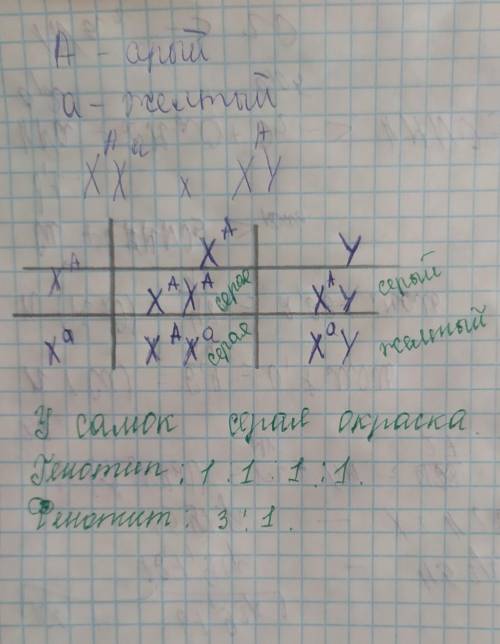 A - арый
a - желтый
X^A X^a x X^A Y
X^A Y
X^A X^A X^A серая X^A Y серый
X^a X^A X^a серая X^a Y желтый
У самок серая окраска.
Генотип: 1:1:1:1.
Фенотип: 3:1.